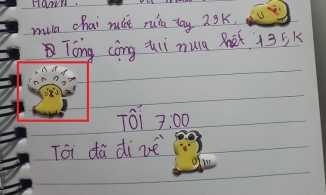 Hạnh.
mua chai nước rửa tay 29K.
Tổng cộng tui mua hết 135K
TỐI 7:00
Tôi đã đi về